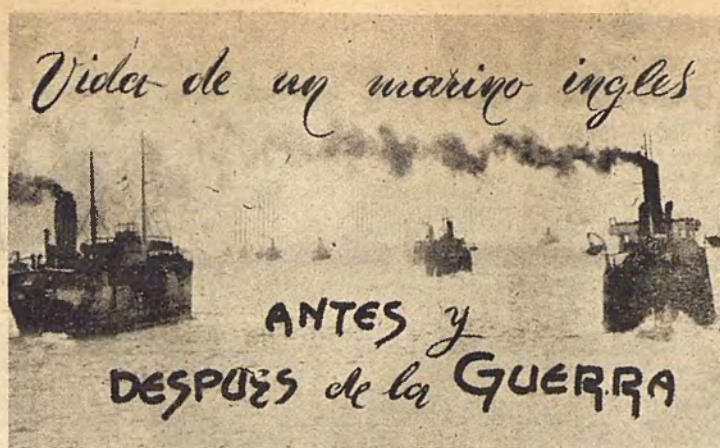 Vida de un marino ingles
ANTES y
DESPUES de la GUERRA